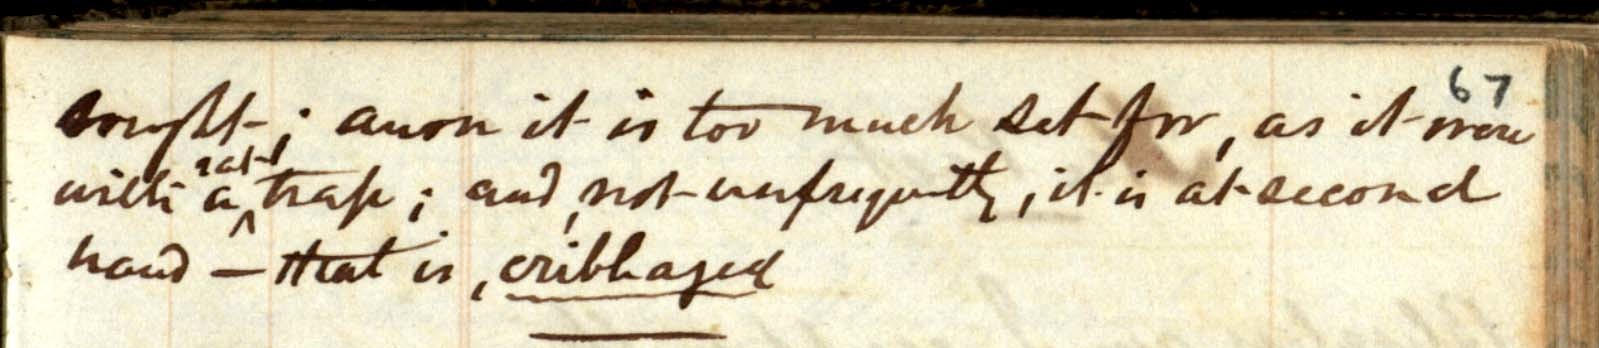 67
sought; anon it is too much set for, as it were
with a rat-trap; and, not unfrequently, it is at second
hand — that is, cribbaged